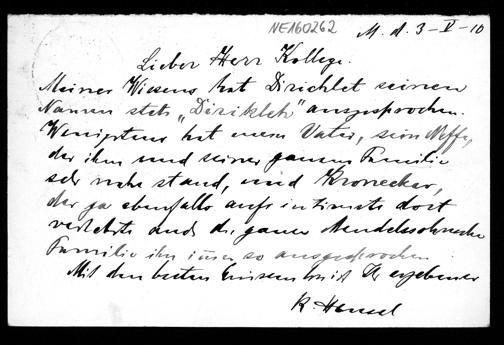 NE160262
M. d. 3-V-10
Lieber Herr Kollege.
Meines Wissens hat Dirichlet seinen
Namen stets „Diriklet" ausgesprochen.
Wenigstens hat mein Vater, sein Neffe,
der ihm und seiner ganzen Familie
sehr nahe stand, und Kronecker,
der ja ebenfalls aufs intimste dort
verkehrte und die ganze Mendelssohnsche
Familie ihn immer so ausgesprochen.
Mit den besten Grüssen Ihr ergebener
K. Hensel